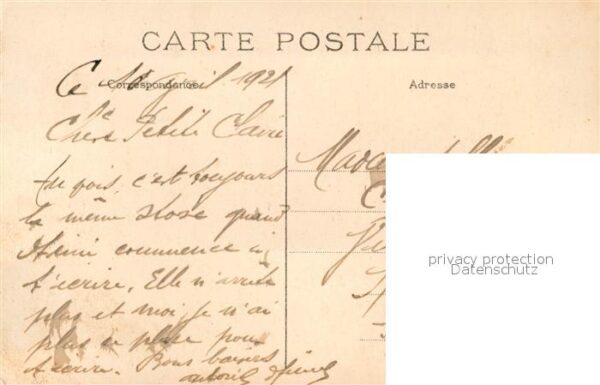 CARTE POSTALE
Correspondance
Adresse
Ce 10 avril 1921
Chère Petite Claire
tu vois, c'est toujours
la même chose quand
commence à
t'écrire. Elle n'arrête
plus et moi, je n'ai
plus de place pour
t'écrire. Bons baisers
privacy protection
Datenschutz